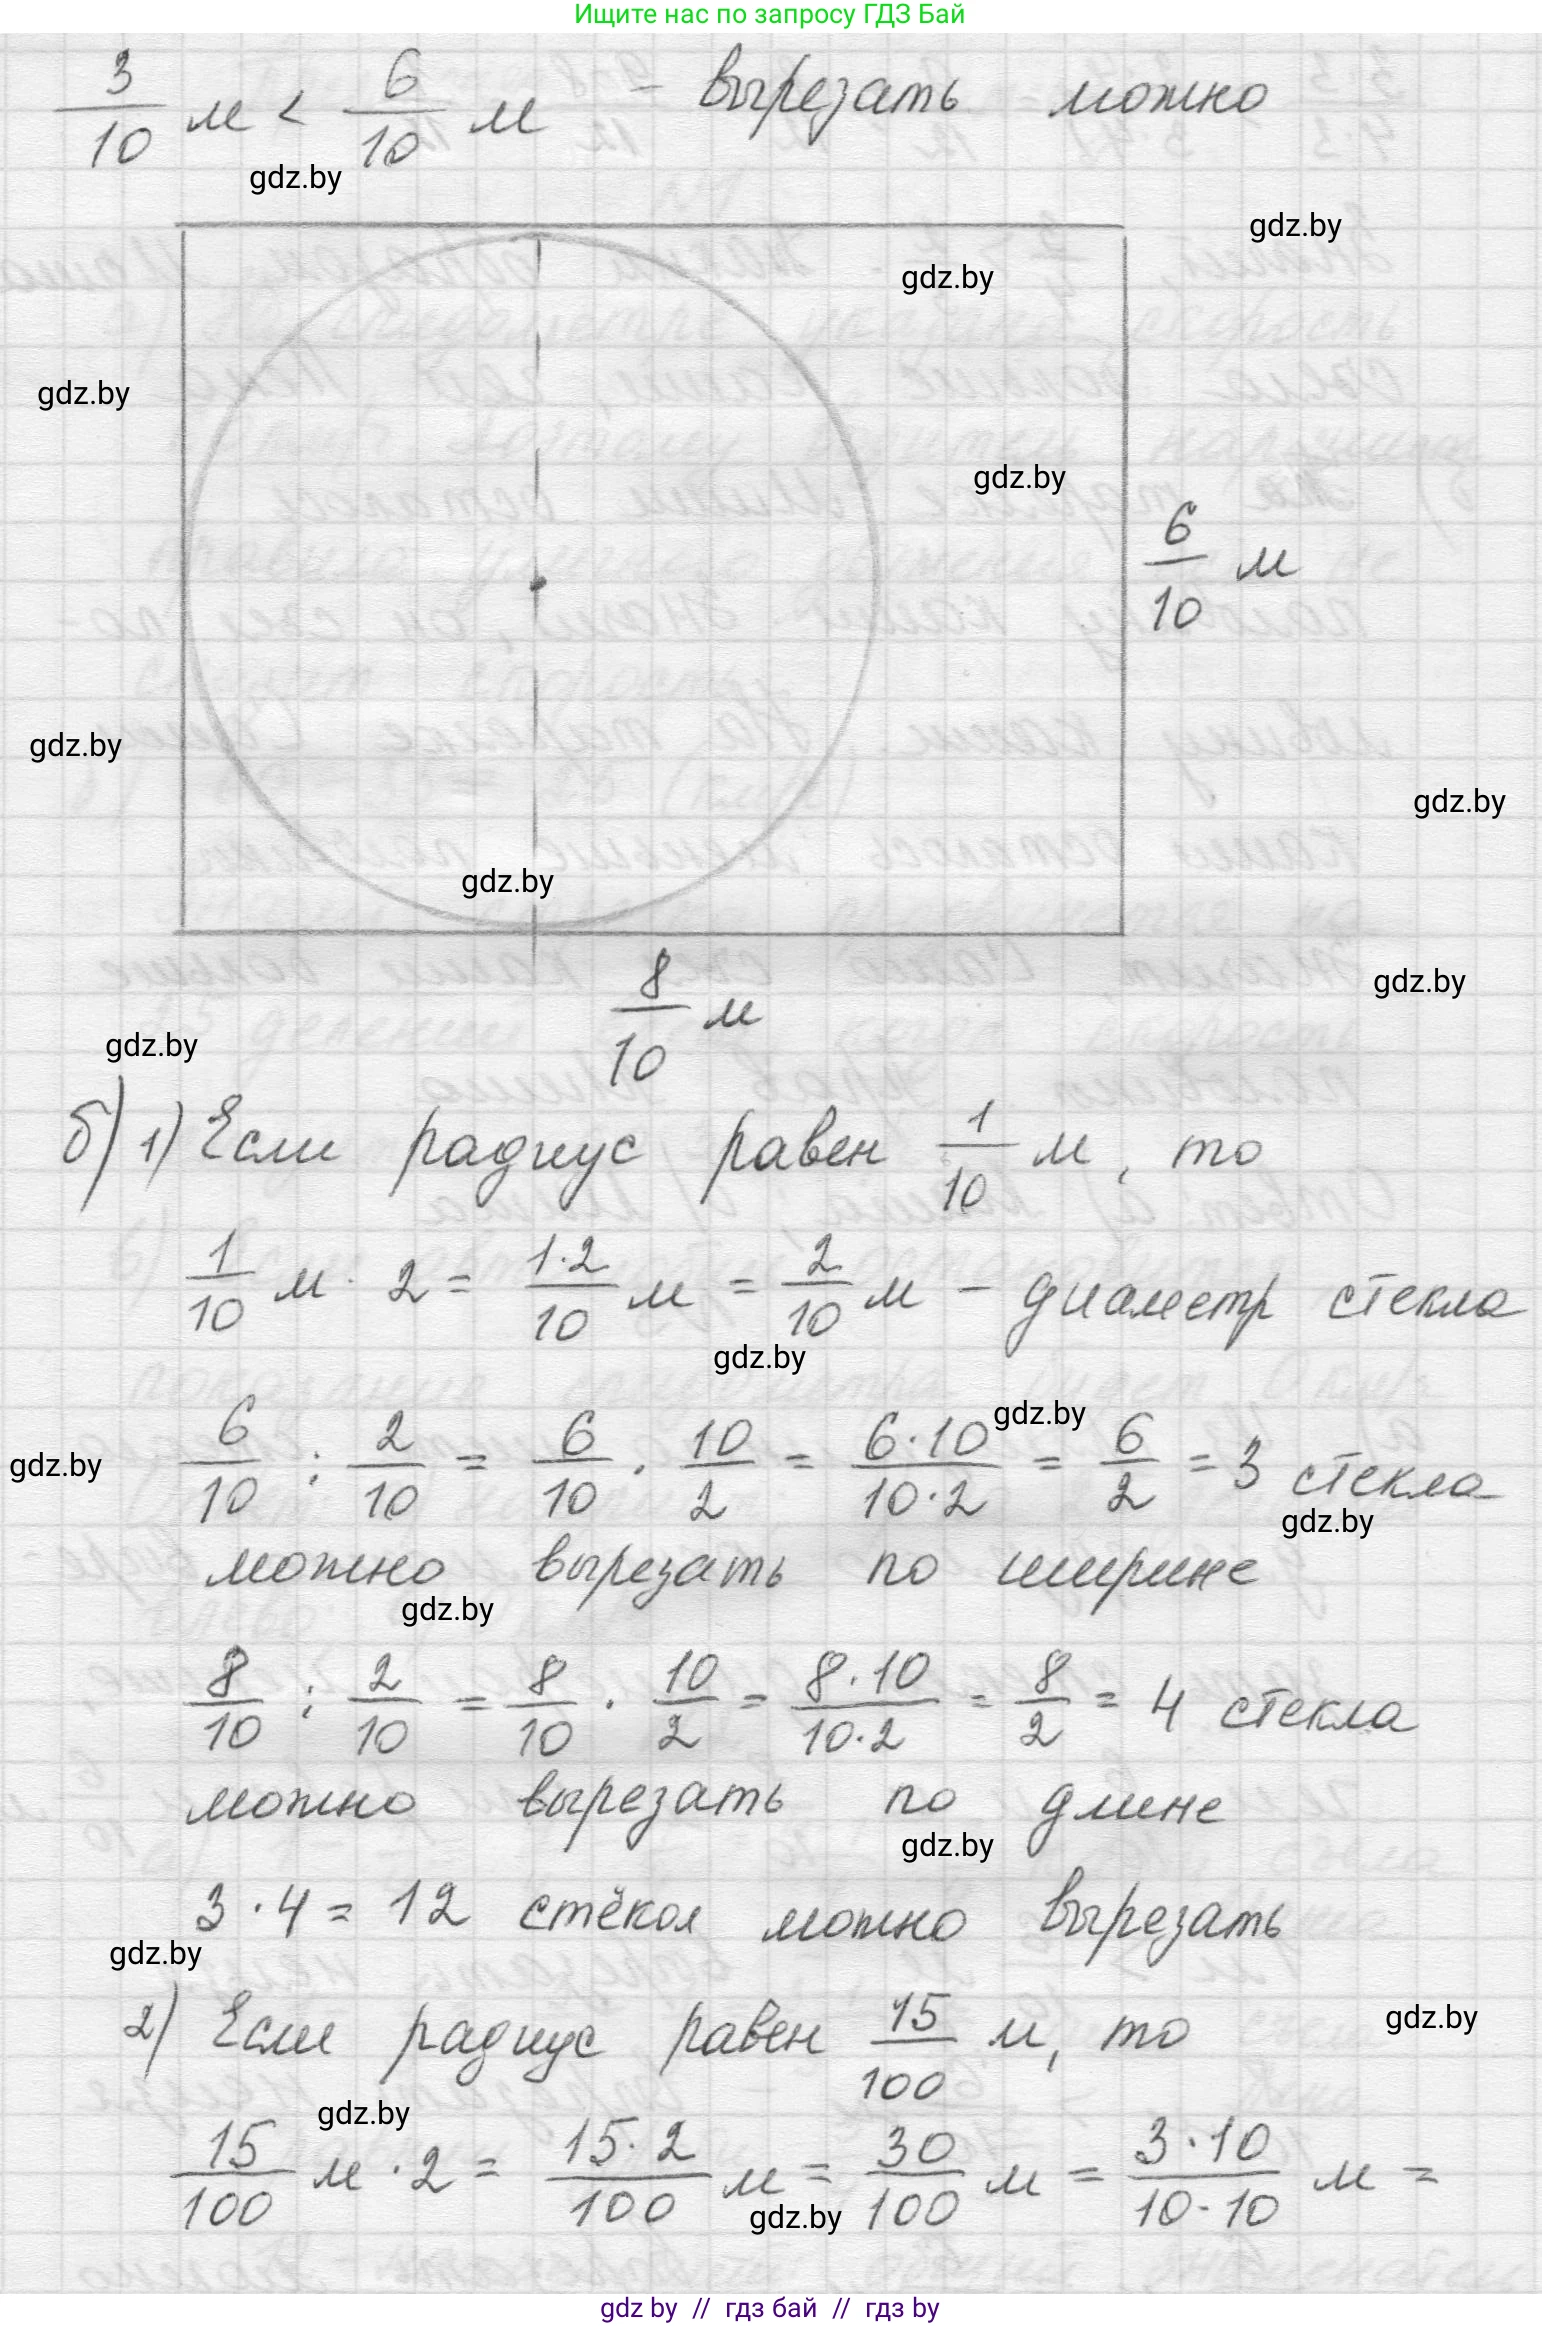 Ищите нас по запросу ГДЗ Бай
3/10 м < 6/10 м - вырезать можно
gdz.by
gdz.by
gdz.by
gdz.by
gdz.by
6/10 м
gdz.by
gdz.by
gdz.by
8/10 м
gdz.by
gdz.by
б) 1) Если радиус равен 1/10 м, то
1/10 м · 2 = 1·2/10 м = 2/10 м - диаметр стекла
gdz.by
gdz.by
6/10 : 2/10 = 6/10 · 10/2 = 6·10/10·2 = 6/2 = 3 стекла
gdz.by
gdz.by
можно вырезать по ширине
gdz.by
8/10 : 2/10 = 8/10 · 10/2 = 8·10/10·2 = 8/2 = 4 стекла
можно вырезать по длине
gdz.by
3 · 4 = 12 стёкол можно вырезать
gdz.by
2) Если радиус равен 15/100 м, то
gdz.by
gdz.by
15/100 м · 2 = 15·2/100 м = 30/100 м = 3·10/10·10 м =
gdz.by
gdz by // гдз бай // гдз by